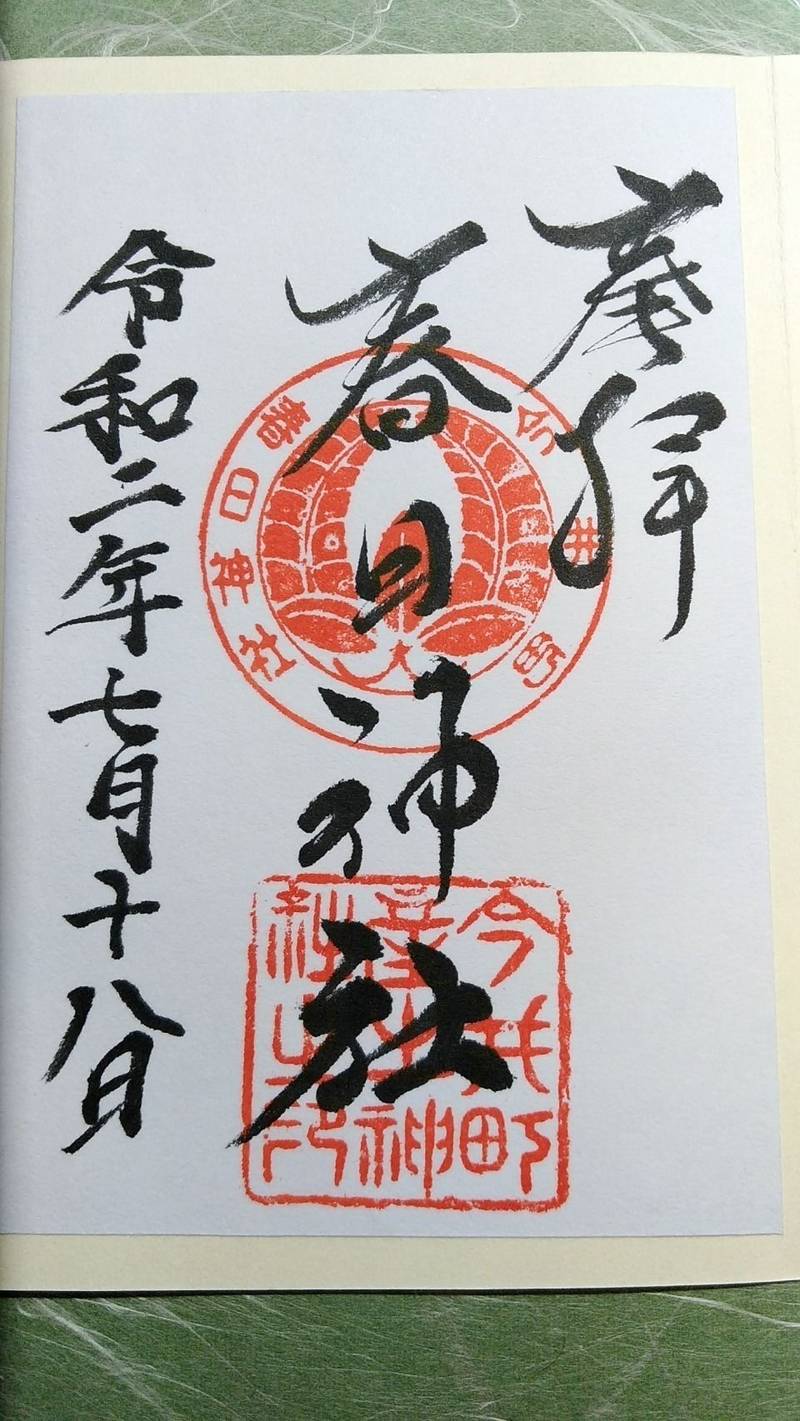 奉拝
春日神社
令和二年七月十八日
今井町
春日神社
今井町
産土神
社之印